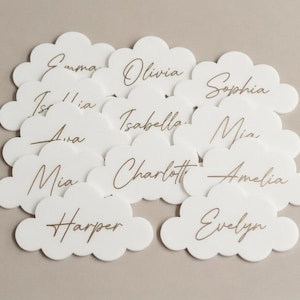 Emma
Olivia
Sophia
Isabella
Mia
Ava
Mia
Charlotte
Amelia
Harper
Evelyn